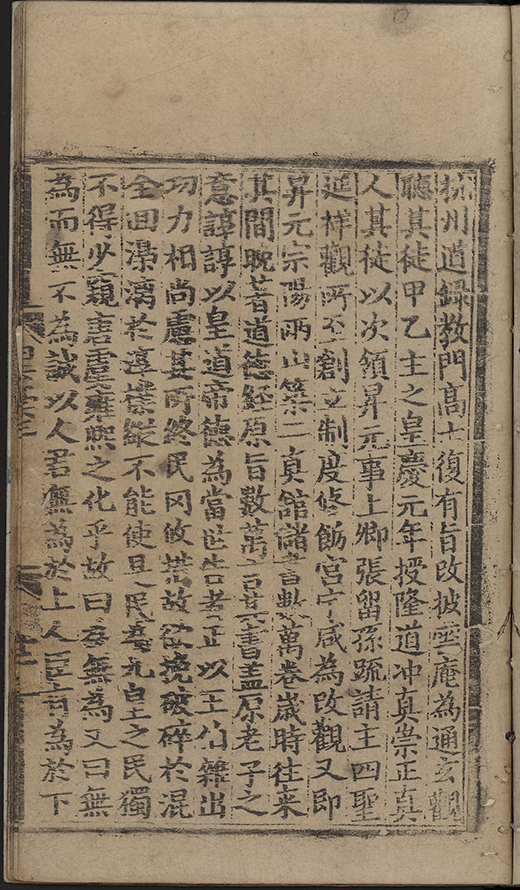 杭州道録教門高士復有旨改披雲庵為通玄觀
聽其徒甲乙主之皇慶元年授隆道冲真崇正真
人其徒以次領昇元事上卿張留孫疏請主四聖
延祥觀所至創立制度修飭宮宇咸為改觀又即
昇元宗陽兩山築二真館諸書數萬卷歲時往来
其間晚著道德経原旨數萬言其書盖原老子之
意諄諄以皇道帝德為當世告者正以王伯雜出
功力相尚慮其所終民冈攸措故欲挽破碎於混
全回澆漓於淳樸縱不能使旦民為九皇之民獨
不得少窺唐虞雍熙之化乎故曰為無為又曰無
為而無不為誠以人君無為於上人臣有為於下